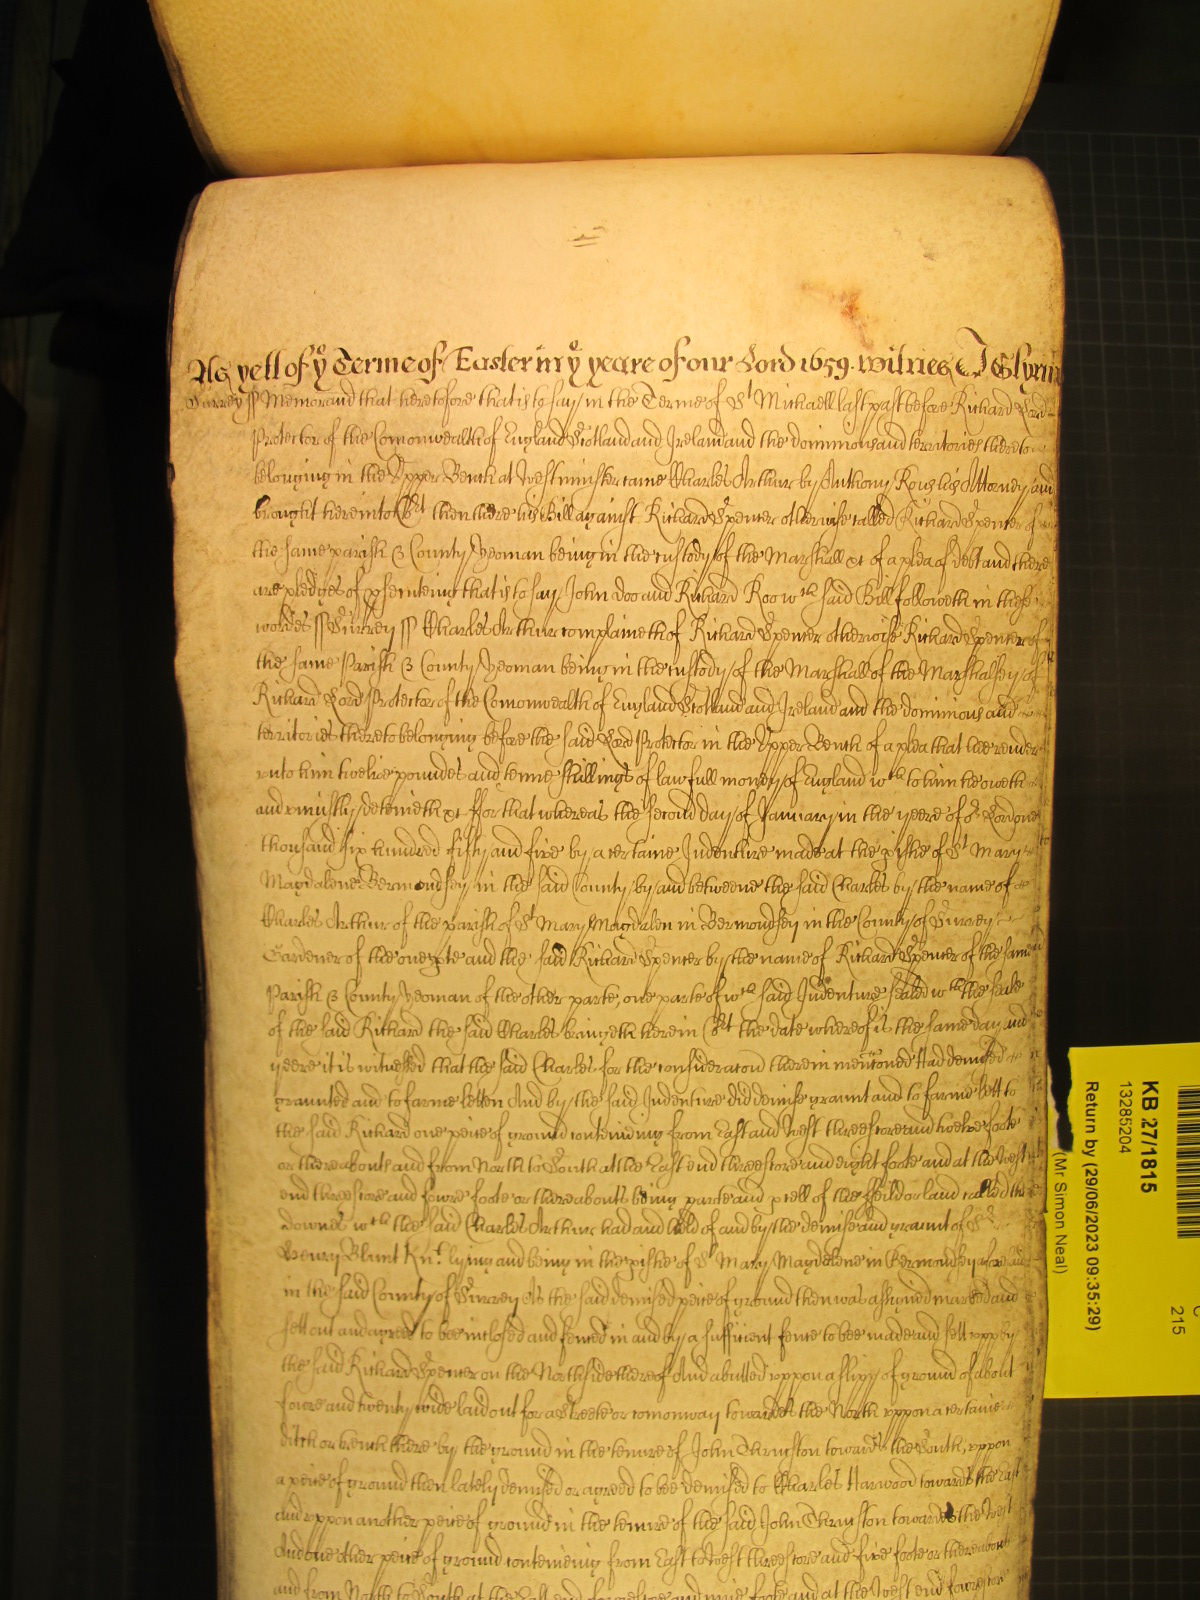 As yett of ye Terme of Easter in ye yeare of our Lord 1659. Witnes J Glynn
Surrey ss Memorand that heretofore that is to say in the Terme of St Michaell last past before Richard Lord
Protector of the Comonwealth of England Scotland and Ireland and the dominions and territories thereto
belonging in the Upper Bench at Westminster came Charles Arthur by Anthony Rous his Attorney and
brought here into Crt then there his Bill against Richard Spencer otherwise called Richard Spencer of
the same parish & County yeoman being in the custody of the Marshall &c of a plea of debt and there
are pledges of psenteing that is to say John Doo and Richard Roo wch said Bill followeth in these
wordes ss Surrey ss Charles Arthur complaineth of Richard Spencer otherwise Richard Spencer of
the same Parish & County yeoman being in the custody of the Marshall of the Marshalsey of
Richard Lord Protector of the Comonwealth of England Scotland and Ireland and the dominions and
territories thereto belonging before the said Lord Protector in the Upper Bench of a plea that hee render
unto him twelve poundes and tenne shillings of lawfull money of England wch to him he oweth
and uniustly deteineth &c ffor that whereas the second day of January in the yeere of or Lord one
thousand six hundred fifty and five by a certaine Indenture made at the pishe of St Mary
Magdalene Bermondsey in the said County by and betweene the said Charles by the name of
Charles Arthur of the parish of St Mary Magdalen in Bermondsey in the County of Surrey
Gardener of the one pte and the said Richard Spencer by the name of Richard Spencer of the same
Parish & County yeoman of the other parte, one parte of wch said Indenture sealed wth the seale
of the said Richard the said Charles bringeth here in Crt the date whereof is the same day and
yeere it is witnessed that the said Charles for the consideracon therein mencioned Had demised
graunted and to farme letten And by the said Indenture did demise graunt and to farme lett to
the said Richard one peice of ground conteining from East and West threescore and twelve foote
or thereabouts and from North to South at the East end threescore and eight foote and at the West
end threescore and fowre foote or thereabouts being parte and pcell of the ffeild or land called the
Downes wch the said Charles Arthur had and held of and by the demise and graunt of Sr
Henry Blunt Knt. lying and being in the pishe of St Mary Magdalene in Bermondsey aforesaid
in the said County of Surrey As the said demised peice of ground then was assigned marked and
sett out and agreed to bee inclosed and fenced in and by a sufficient fence to bee made and sett upp by
the said Richard Spencer on the North side thereof And abutted uppon a slipp of ground of about
fowre and twenty wide laid out for a Streete or comon way towardes the North uppon a certaine
ditch or trench there by the ground in the tenure of John Thruston towards the South, uppon
a peice of ground then lately demised or agreed to bee demised to Charles Harwood towards the East
and uppon another peice of ground in the tenure of the said John Thruston towardes the West
And one other peice of ground conteineing from East to West threescore and five foote or thereabouts
and from North to South at the East end fowrescore and nine foote and at the West end fowrescore
KB 27/1815
13285204
Return by (29/06/2023 09:35:29)
(Mr Simon Neal)
215